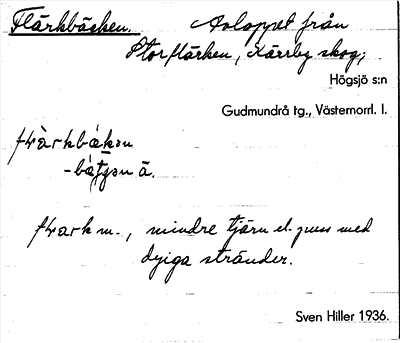 Flärkbäcken. Avloppet från
Storflärken, Kärrby skog;
Högsjö s:n
Gudmundrå tg., Västernorrl. l.
-bát̄ʃən ä.
m., mindre tjärn el. puss med
dyiga stränder.
Sven Hiller 1936.